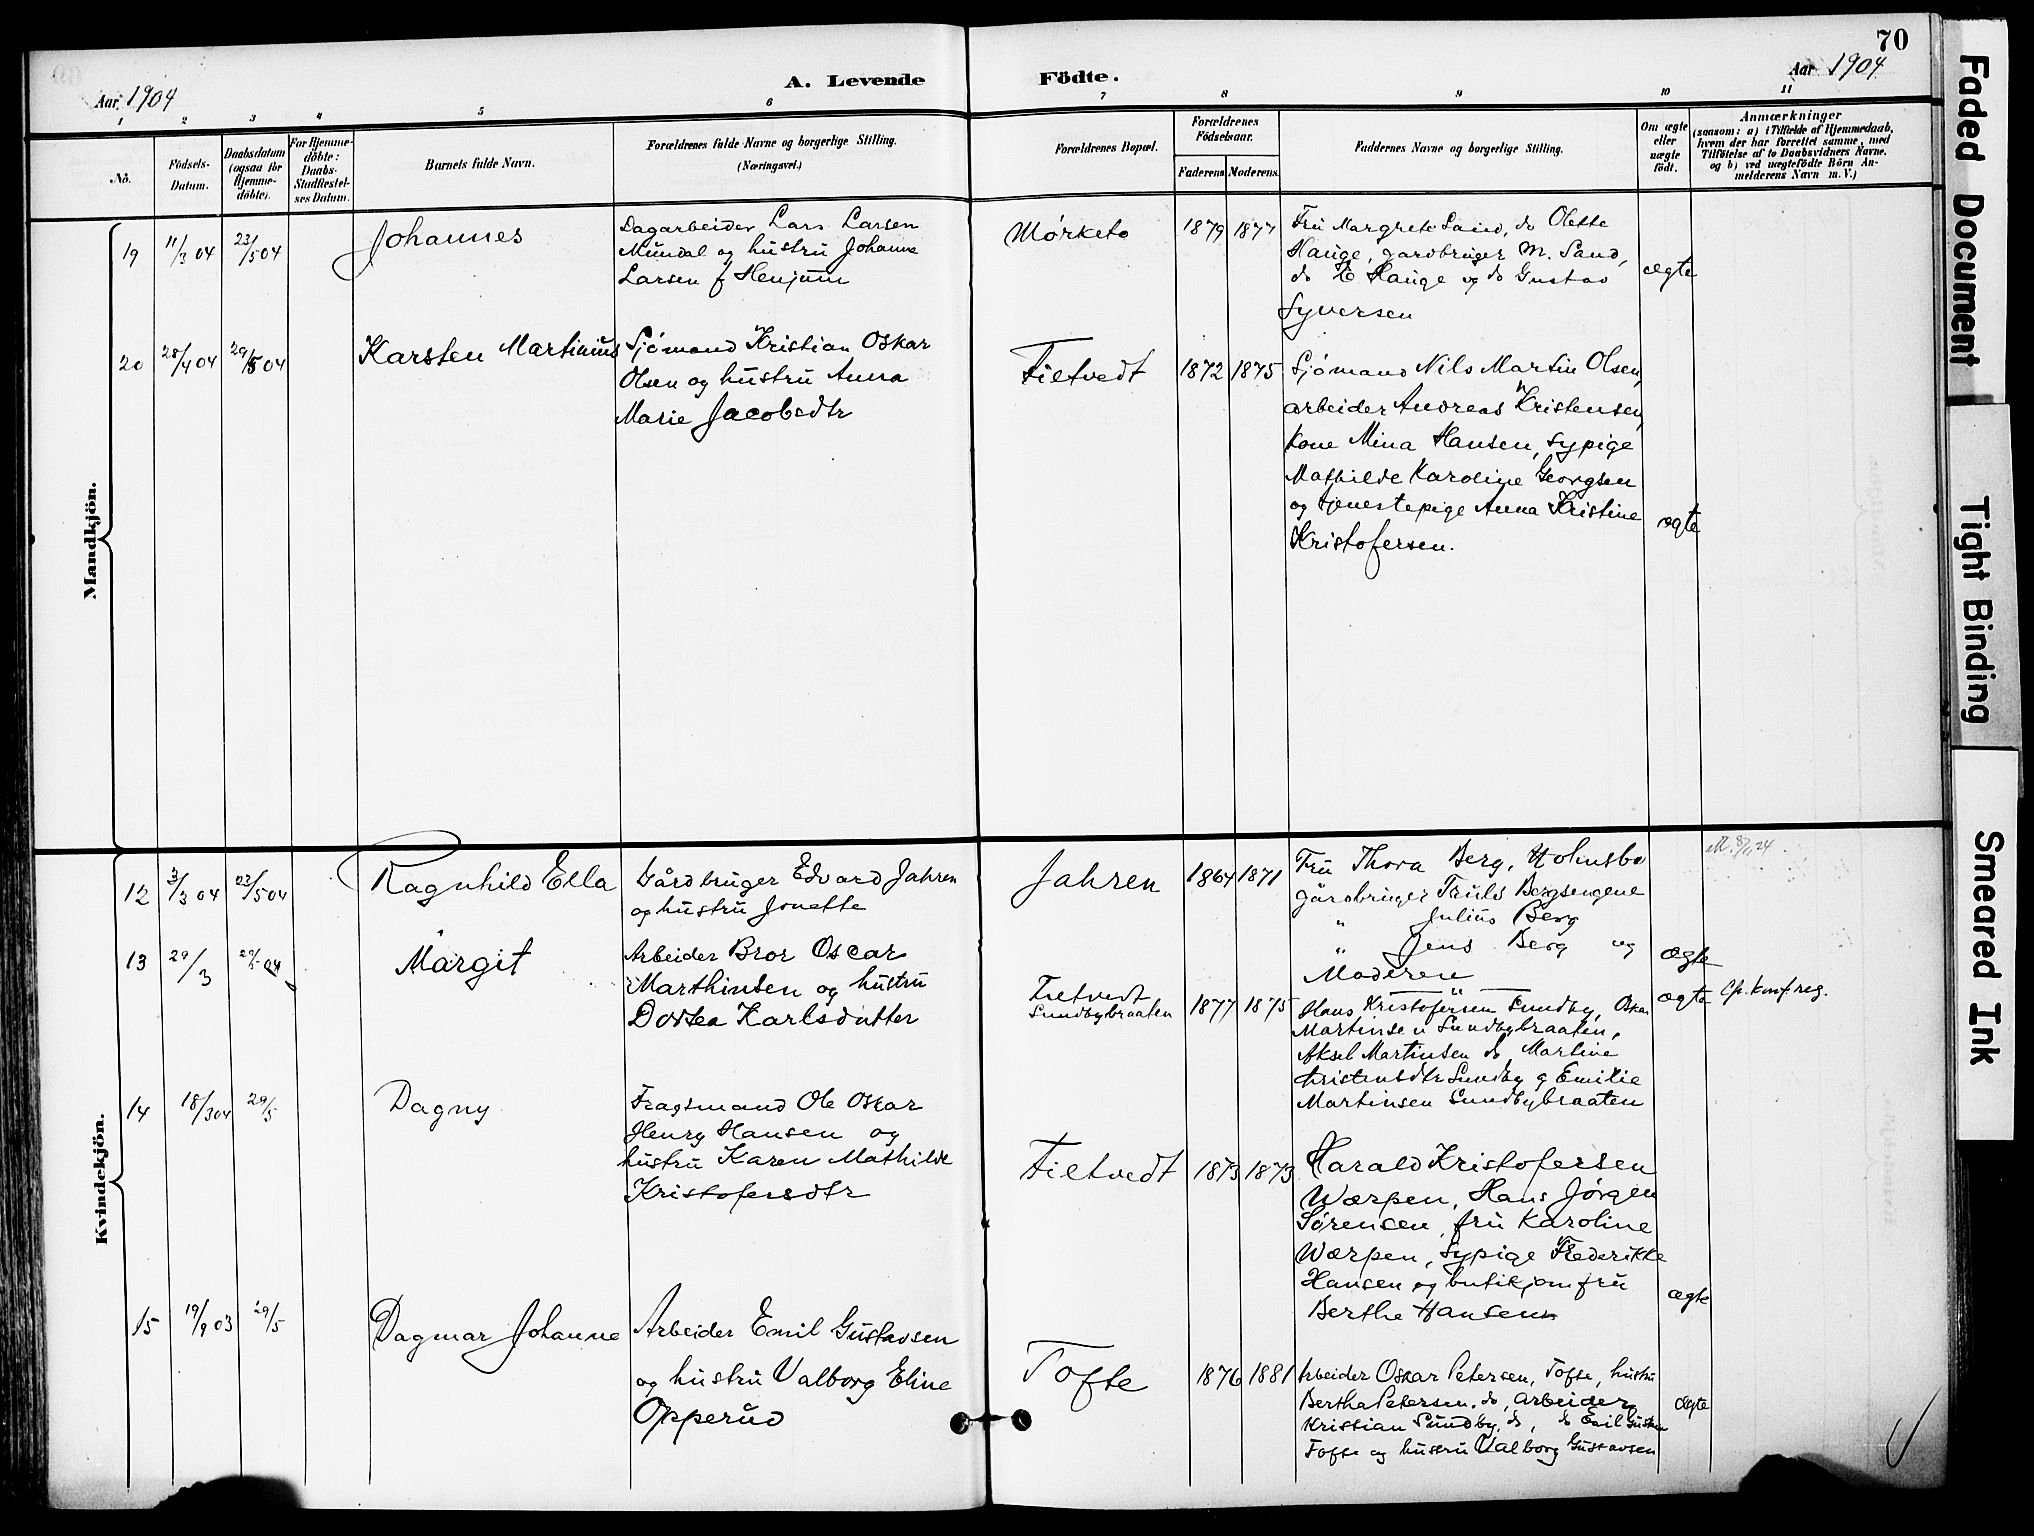 70
Aar 1904
A. Levende Födte.
Aar 1904
1 2 3 4 5 6 7 8 9 10 11
No.
Födsels-Datum.
Daabsdatum (ogsaa for Hjemme-döbte).
For Hjemme-döbte: Daabs-Stadfæstel-ses Datum.
Barnets fulde Navn.
Forældrenes fulde Navne og borgerlige Stilling.
(Næringsvei.)
Forældrenes Bopæl.
Forældrenes Födselsaar.
Faderens. Moderens.
Faddernes Navne og borgerlige Stilling.
Om ægte eller uægte födt.
Anmærkninger
(saasom: a) i Tilfælde af Hjemmedaab,
hvem der har forrettet samme, med
Tilföielse af to Daabsvidners Navne,
og b) ved uægtefödte Börn An-
melderens Navn m. V.)
Mandkjön.
19 11/3 04 23/5 04 Johannes
Dagarbeider Lars Larsen
Mundal og hustru Johanne
Larsen f Henjum
Mørketo 1879 1877
Fru Margrete Sand, do Olette
Hauge, gardbruger M. Sand,
do E Hauge og do Gustav
Syversen
ægte
20 28/4 04 29/5 04 Karsten Martinius
Sjömand Kristian Oskar
Olsen og hustru Anna
Marie Jacobsdtr
Filtvedt 1872 1875
Sjömand Nils Martin Olsen,
arbeider Andreas Kristensen,
kone Mina Hansen, sypige
Mathilde Karoline Georgsen
og tjenestepige Anna Kristine
Kristofersen.
ægte
Kvindekjön.
12 3/3 04 23/5 04 Ragnhild Ella
Gårdbruger Edvard Jahren
og hustru Jonette
Jahren 1864 1871
Fru Thora Berg, Holmsbo
gårdbruger Truls Bergsengene
" Julius Berg
" Jens Berg og
Moderen
ægte
13 29/3 29/5 04 Margit
Arbeider Bror Oscar
Marthinsen og hustru
Dortea Karlsdatter
Filtvedt
Sundbybraaten 1877 1875
Hans Kristofersen Sundby, Oskar
Martinsen Sundbybraaten,
Aksel Martinsen do, Martine
Kristensdtr Sundby og Emilie
Martinsen Sundbybraaten
ægte
Cfr. konf. reg.
14 18/3 04 29/5 Dagny
Fragtmand Ole Oskar
Henry Hansen og
hustru Karen Mathilde
Kristofersdtr
Filtvedt 1873 1873
Harald Kristofersen
Wærpen, Hans Jørgen
Sørensen, fru Karoline
Wærpen, sypige Frederikke
Hansen og butikjomfru
Berthe Hansen
ægte
15 19/9 03 29/5 Dagmar Johanne
Arbeider Emil Gustavsen
og hustru Valborg Eline
Opperud
Tofte 1876 1881
Arbeider Oskar Petersen, Tofte, hustru
Bertha Petersen, do, arbeider
Kristian Sundby, do, do Emil Gustavsen
Tofte og hustru Valborg Gustavsen
ægte
Faded Document
Tight Binding
Smeared Ink